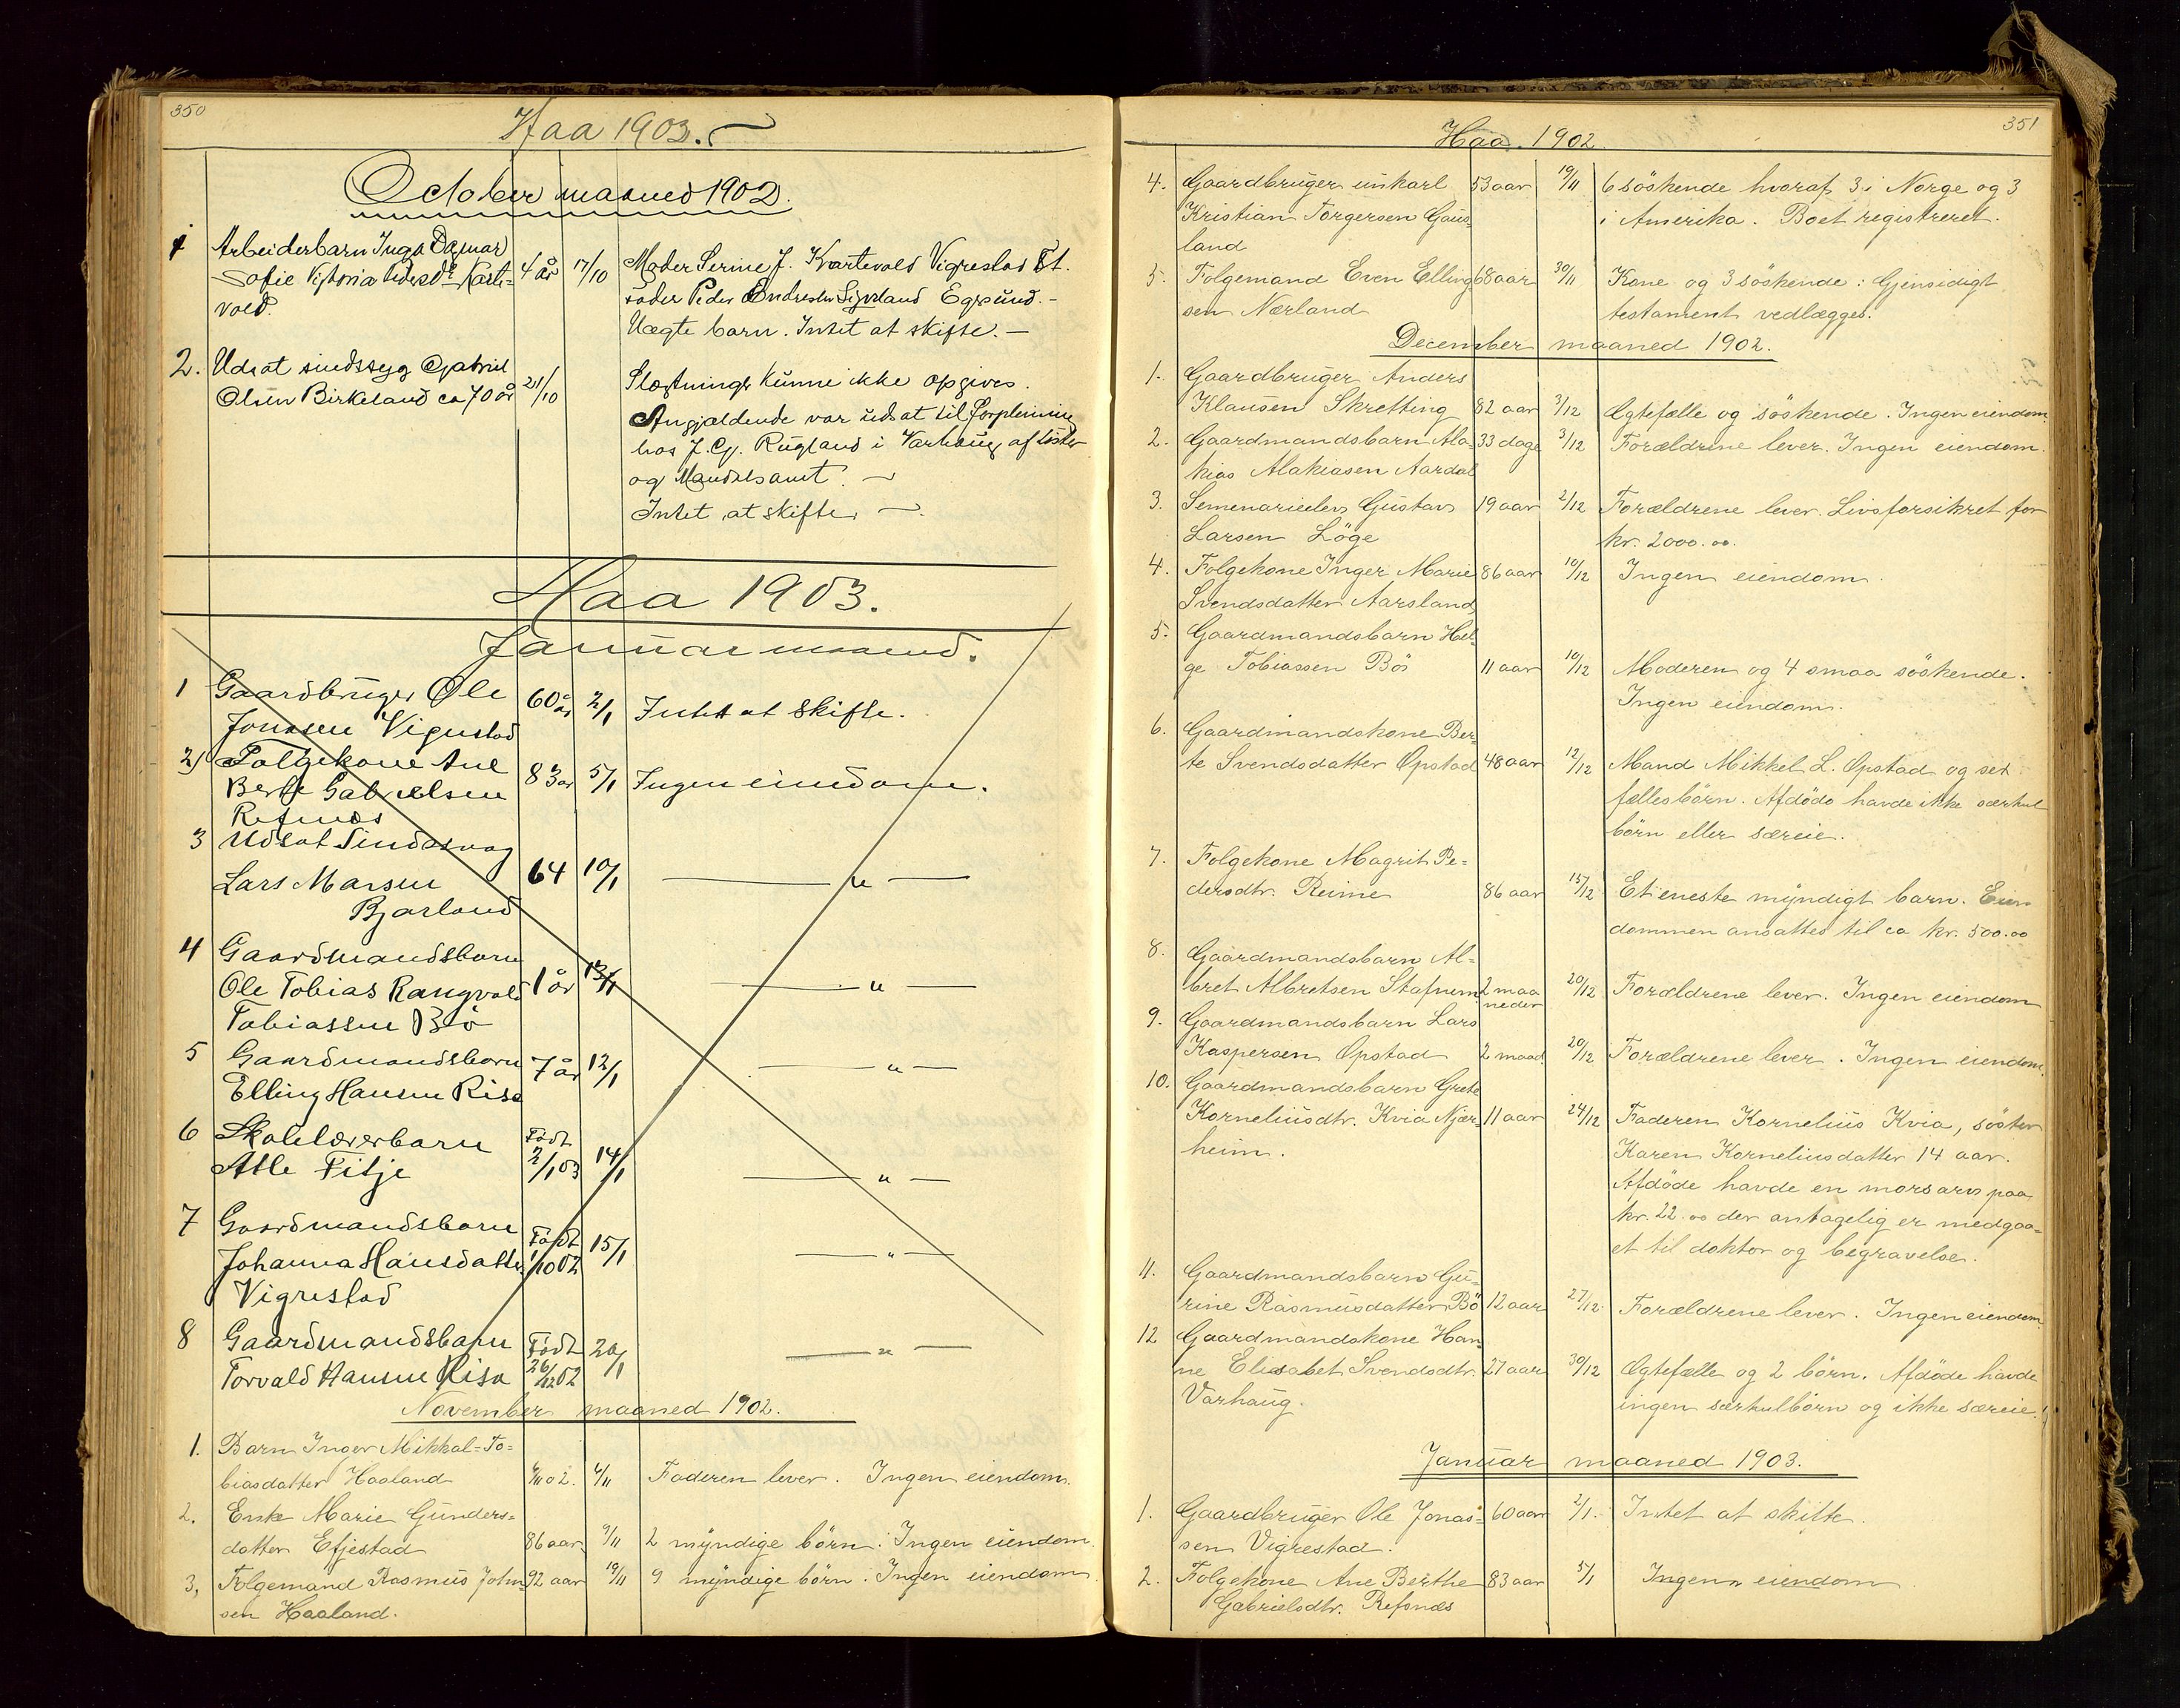 350
Haa 1903.
October maaned 1902.
1 Arbeiderbarn Inga Dagmar
Sofie Viktoria Pedersdtr Karte-
vold. 4 år 17/10 Moder Serine J. Kvartevold Vigrestad St.
fader Peder Endresen Sigveland Egersund. –
Uægte barn. Intet at skifte. –
2. Udsat sindssyg Gabriel
Olsen Birkeland ca 70 år 21/10 Slægtninger kunne ikke opgives.
Angjældende var udsat til forpleining
hos J. G. Rugland i Varhaug af Lister
og Mandals amt. –
Intet at skifte. –
Haa 1903.
Januar maaned.
1 Gaardbruger Ole
Jonasen Vigrestad 60 år 2/1 Intet at skifte.
2) Følgekone Ane
Berte Gabrielsen
Refsnæs 83 år 5/1 Ingen eiendom.
3 Udsat Sindssvag
Lars Marsen
Bjarland 64 10/1 — " —
4 Gaardmandsbarn
Ole Tobias Rangvald
Tobiassen Bø 1 år 13/1 — " —
5 Gaardmandsbarn
Elling Hansen Risa 7 år 12/1 — " —
6 Skolelærerbarn
Atle Fitje Født 2/1 03 14/1 — " —
7 Gaardmandsbarn
Johanna Hansdatter
Vigrestad Født 1/10 02 15/1 — " —
8 Gaardmandsbarn
Torvald Hansen Risa Født 26/12 02 20/1 — " —
November maaned 1902.
1. Barn Inger Mikkal-To-
biasdatter Haaland 4/11 02. 4/11 Faderen lever. Ingen eiendom.
2. Enke Marie Gunders-
datter Efjestad 86 aar 9/11 2 myndige børn. Ingen eiendom.
3, Følgemand Rasmus John- 92 aar 19/11 9 myndige børn. Ingen eiendom.
sen Haaland.
351
Haa. 1902.
4. Gaardbruger unkarl 53 aar 19/11 6 söskende hvoraf 3 i Norge og 3
Kristian Torgersen Gaus- i Amerika. Boet registreret.
land
5. Folgemand Even Elling- 68 aar 30/11 Kone og 3 söskende: Gjensidigt
sen Nærland testament vedlægges.
December maaned 1902.
1. Gaardbruger Anders
Klausen Skretting 82 aar 3/12 Ægtefælle og söskende. Ingen eiendom.
2. Gaardmandsbarn Ala- 33 dage 3/12 Forældrene lever. Ingen eiendom.
kias Alakiasen Aardal
3. Semenarieelev Gustav 19 aar 2/12 Forældrene lever. Livsforsikret for
Larsen Löge kr. 2000.00.
4. Folgekone Inger Marie 86 aar 10/12 Ingen eiendom.
Svendsdatter Aarsland
5. Gaardmandsbarn Hel-
ge Tobiassen Bö 11 aar 10/12 Moderen og 4 smaa söskende.
Ingen eiendom.
6. Gaardmandskone Ber-
te Svendsdatter Opstad 48 aar 12/12 Mand Mikkel L. Opstad og set
fællesbörn. Afdöde havde ikke særkul-
börn eller særeie.
7. Folgekone Magrit Pe-
dersdtr. Reime 86 aar 15/12 Et eneste myndigt barn. Eien-
dommen ansattes til ca kr. 500.00
8. Gaardmandsbarn Al-
bret Albretsen Stafnem 2 maaneder 20/12 Forældrene lever. Ingen eiendom
9. Gaardmandsbarn Lars
Kaspersen Opstad 2 maad. 20/12 Forældrene lever. Ingen eiendom.
10. Gaardmandsbarn Grete
Korneliusdtr. Kvia Njær- 11 aar 24/12 Faderen Kornelius Kvia, söster
heim. Karen Korneliusdatter 14 aar.
Afdöde havde en morsarv paa
kr. 22.00 der antagelig er medgaa-
et til doktor og begravelse.
11. Gaardmandsbarn Gu-
rine Rasmusdatter Bö 12 aar 27/12 Forældrene lever. Ingen eiendom.
12 Gaardmandskone Han-
ne Elisabet Svendsdtr. 27 aar 30/12 Ægtefælle og 2 börn. Afdöde havde
Varhaug. ingen særkulbörn og ikke særeie.
Januar maaned 1903.
1. Gaardbruger Ole Jonas- 60 aar 2/1. Intet at skifte.
sen Vigrestad.
2. Folgekone Ane Berthe 83 aar 5/1 Ingen eiendom
Gabrielsdtr. Refsnæs